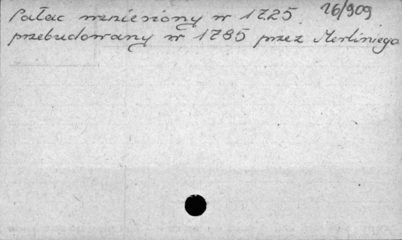 Pałac wzniesiony w 1725. 26/909
przebudowany w 1785 przez Merliniego